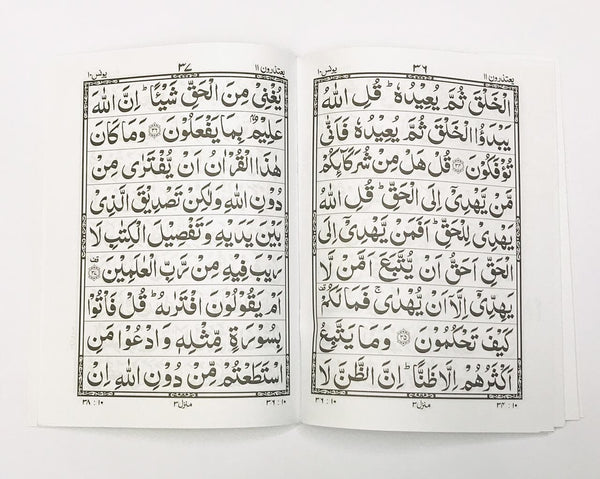 يعتذرون ١١
٣٦
يونس ١٠
الْخَلْقَ ثُمَّ يُعِيْدُهٗ ؕ قُلِ اللّٰهُ
يَبْدَؤُا الْخَلْقَ ثُمَّ يُعِيْدُهٗ فَاَنّٰى
تُؤْفَكُوْنَ ﴿۳۴﴾ قُلْ هَلْ مِنْ شُرَكَآىِٕكُمْ
مَّنْ يَّهْدِىْۤ اِلَى الْحَقِّ ؕ قُلِ اللّٰهُ
يَهْدِىْ لِلْحَقِّ ؕ اَفَمَنْ يَّهْدِىْۤ اِلَى
الْحَقِّ اَحَقُّ اَنْ يُّتَّبَعَ اَمَّنْ لَّا
يَهِدِّىْۤ اِلَّاۤ اَنْ يُّهْدٰى ۚ فَمَا لَكُمْ
كَيْفَ تَحْكُمُوْنَ ﴿۳۵﴾ وَمَا يَتَّبِعُ
اَكْثَرُهُمْ اِلَّا ظَنًّا ؕ اِنَّ الظَّنَّ لَا
٣٤ : ١٠
منزل ٣
٣٦ : ١٠
يعتذرون ١١
٣٧
يونس ١٠
يُغْنِىْ مِنَ الْحَقِّ شَيْـًٔا ؕ اِنَّ اللّٰهَ
عَلِيْمٌۢ بِمَا يَفْعَلُوْنَ ﴿۳۶﴾ وَمَا كَانَ
هٰذَا الْقُرْاٰنُ اَنْ يُّفْتَرٰى مِنْ
دُوْنِ اللّٰهِ وَلٰكِنْ تَصْدِيْقَ الَّذِىْ
بَيْنَ يَدَيْهِ وَتَفْصِيْلَ الْكِتٰبِ لَا
رَيْبَ فِيْهِ مِنْ رَّبِّ الْعٰلَمِيْنَ ﴿۳۷﴾
اَمْ يَقُوْلُوْنَ افْتَرٰىهُ ؕ قُلْ فَاْتُوْا
بِسُوْرَةٍ مِّثْلِهٖ وَادْعُوْا مَنِ
اسْتَطَعْتُمْ مِّنْ دُوْنِ اللّٰهِ اِنْ
٣٦ : ١٠
منزل ٣
٣٨ : ١٠